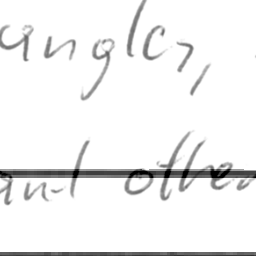 angles,
and other